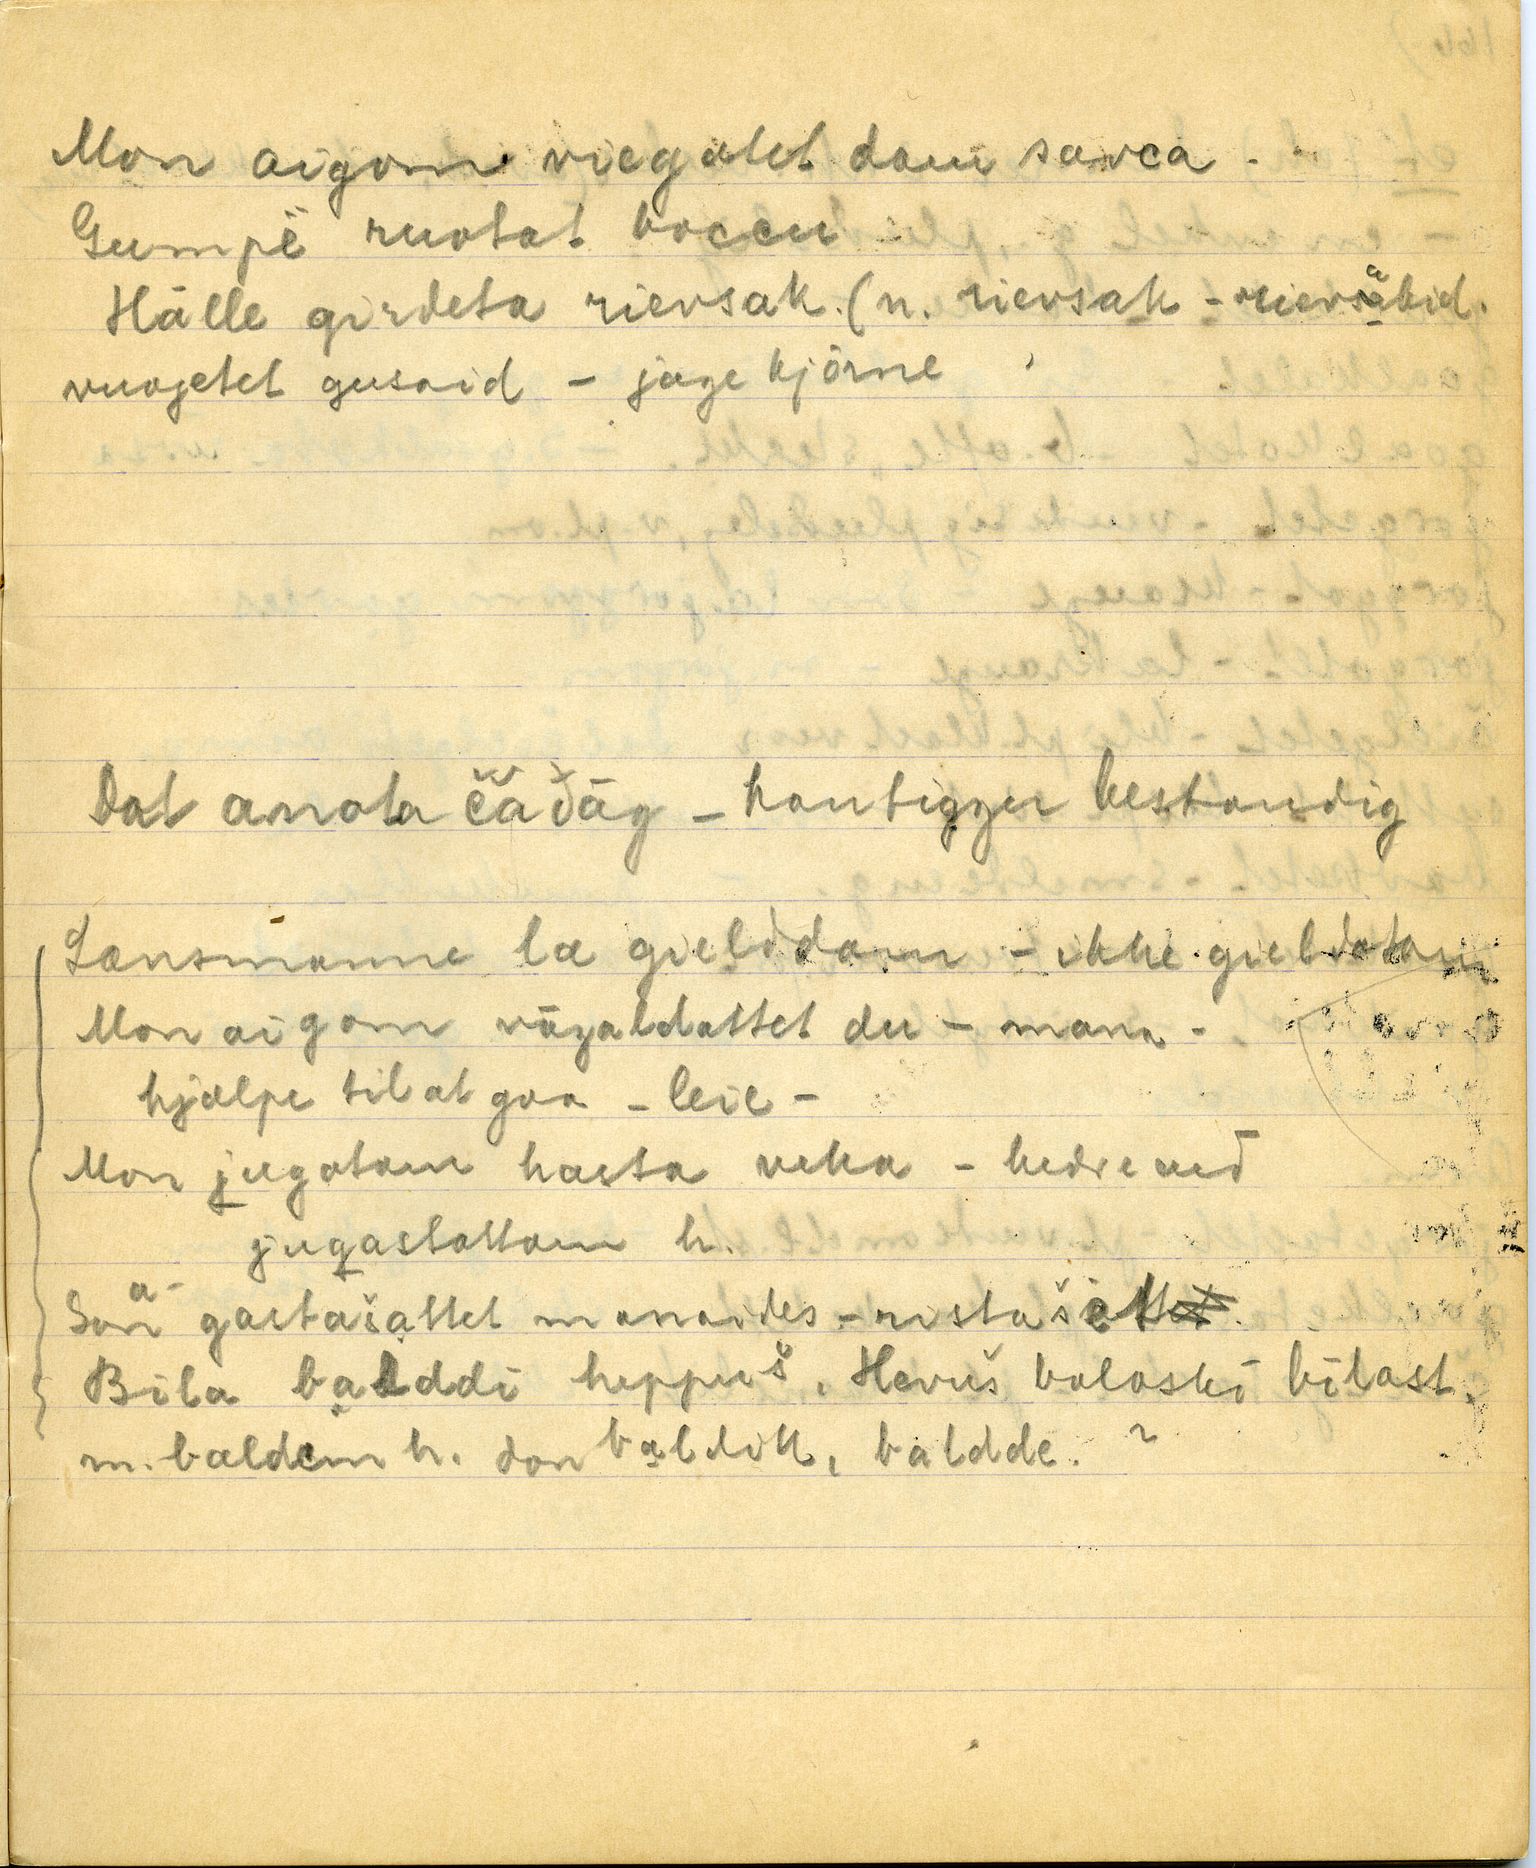 Mon aigom viegatet dam savca.
Gumpē ruotat boccu
Hālle girdeta rievsak. (n. rievsak - rievsākid.
vuojetet gusaid - jage kjörne
Dat anota čađāg - han tigger bestandig
Lænsmanne læ gielddam - ikke gieldatam
Mon aigom vāzaldattet du - mana -
hjælpe til at gaa - leie -
Mon jugatam hæsta veka - bedre med
jugastattam h.
Son gastašattet manaides - ristašet
Bila balddi heppuš. Hevuš balaski bilast.
m. baldem h. don baldik, baldde.